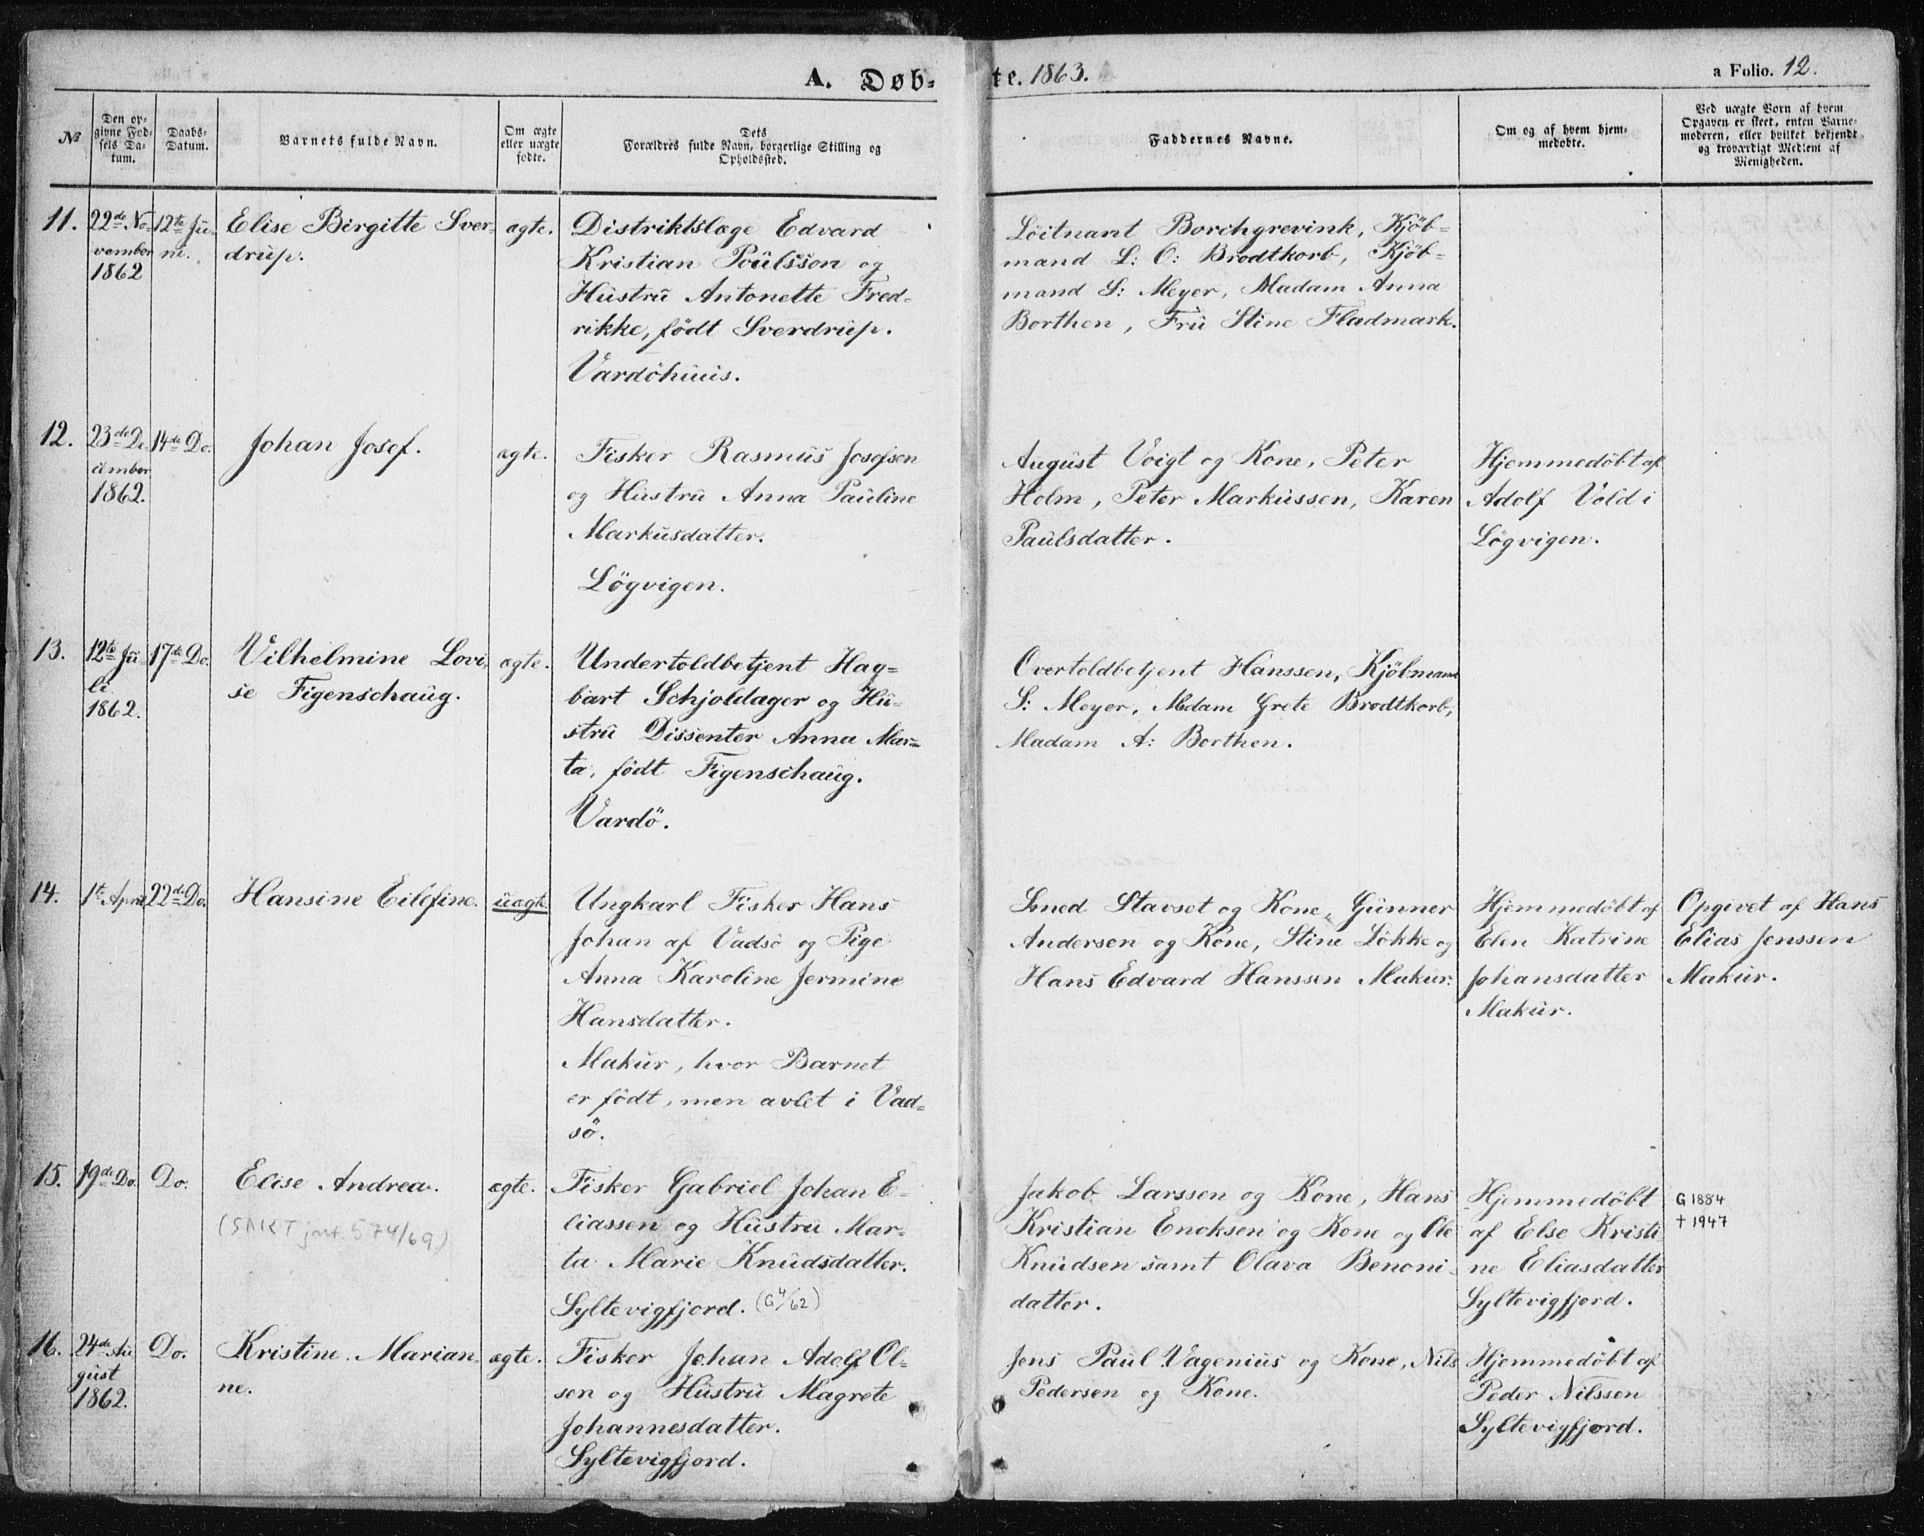 A. Døb-
te. 1863.
a Folio. 12.
№
Den op-
givne Fød-
sels Da-
tum.
Daabs-
Datum.
Barnets fulde Navn.
Om ægte
eller uægte
fødte.
Dets
Forældres fulde Navn, borgerlige Stilling og
Opholdssted.
Faddernes Navne.
Om og af hvem hjem-
medøbte.
Ved uægte Børn af hvem
Opgaven er skeet, enten Barne-
moderen, eller hvilket bekjendt
og troværdigt Medlem af
Menigheden.
11.
22de No-
vember
1862
12te Ju-
ni.
Elise Birgitte Sver-
drup.
ægte.
Distriktslæge Edvard
Kristian Poulsson og
Hustru Antonette Fred-
rikke, født Sverdrup.
Vardöhuus.
Löitnant Borchgrevink, Kjöb-
mand L: O: Brodtkorb, Kjöb-
mand S: Meyer, Madam Anna
Borthen, Fru Stine Fladmark.
12.
23de De
cember
1862.
14de Do.
Johan Josef.
ægte.
Fisker Rasmus Josefsen
og Hustru Anna Pauline
Markusdatter.
Lögvigen.
August Voigt og Kone, Peter
Holm, Peter Markussen, Karen
Paulsdatter.
Hjemmedöbt af
Adolf Vold i
Lögvigen.
13.
12te Ju
li
1862.
17de Do.
Vilhelmine Lovi
se Figenschaug.
ægte.
Undertoldbetjent Hag-
bart Schjoldager og Hu-
stru Dissenter Anna Mar-
ta, födt Figenschaug.
Vardö.
Overtoldbetjent Hanssen, Kjöbmand
S: Meyer, Mdam Grete Brodtkorb,
Madam A: Borthen.
14.
1te April
22de Do.
Hansine Eilefine.
uægte.
Ungkarl Fisker Hans
Johan af Vadsö og Pige
Anna Karoline Jermine
Hansdatter.
Makur, hvor Barnet
er födt, men avlet i Vad-
sö.
Smed Stavset og Kone, Gunner
Andersen og Kone, Stine Lökke og
Hans Edvard Hanssen Makur.
Hjemmedöbt af
Elen Katrine
Johansdatter
Makur.
Opgivet af Hans
Elias Jenssen
Makur.
15.
19de Do.
Do.
Elise Andrea.
(SAKT jort. 574/69)
ægte.
Fisker Gabriel Johan E-
liassen og Hustru Mar-
ta Marie Knudsdatter.
Syltevigfjord. (G 4/62)
Jakob Larssen og Kone, Hans
Kristian Enoksen og Kone og Ole
Knudsen samt Olava Benoni-
datter.
Hjemmedöbt
af Else Kristi
ne Eliasdatter
Syltevigfjord.
G 1884
† 1947
16.
24de Au
gust
1862.
Do.
Kristine Marian
ne.
ægte.
Fisker Johan Adolf Ol-
sen og Hustru Magrete
Johannesdatter.
Syltevigfjord.
Jens Paul Vagenius og Kone, Nils
Pedersen og Kone.
Hjemmedöbt af
Peder Nilssen
Syltevigfjord.